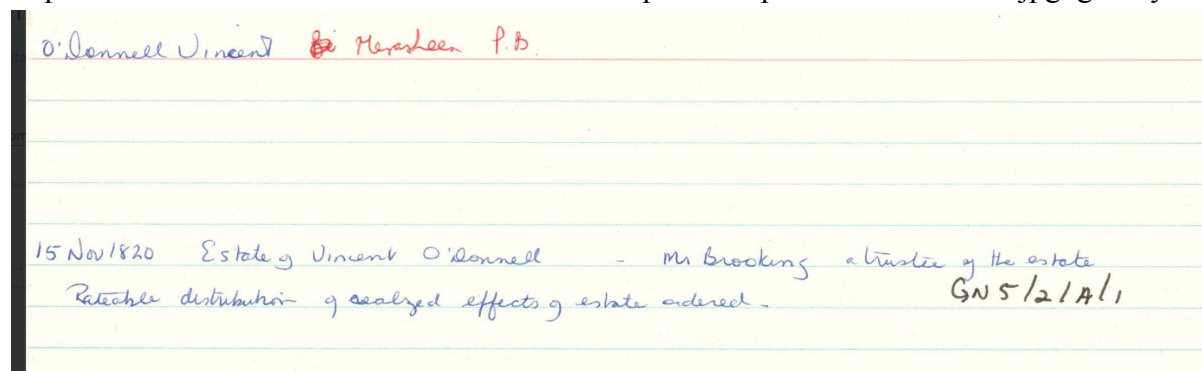 O'Donnell Vincent Merasheen P.B.
15 Nov 1820 Estate of Vincent O'Donnell - Mr Brooking a trustee of the estate
Rateable distribution of realized effects of estate ordered.
GN 5/2/A/1